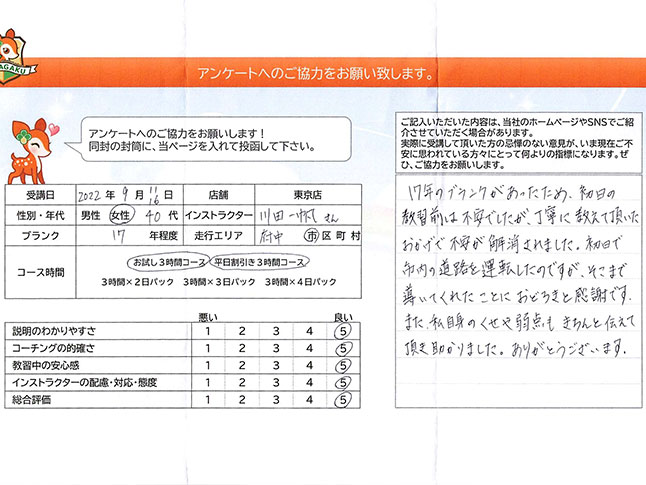 AGAKU
アンケートへのご協力をお願い致します。
アンケートへのご協力をお願いします！
同封の封筒に、当ページを入れて投函して下さい。
ご記入いただいた内容は、当社のホームページやSNSでご紹
介させていただく場合があります。
実際に受講して頂いた方の忌憚のない意見が、いま現在ご不
安に思われている方々にとって何よりの指標になります。ぜ
ひ、ご協力をお願いします。
受講日 2022 年 9 月 11 16 日 店舗 東京店
性別・年代 男性 女性 40 代 インストラクター 川田 一帆 さん
ブランク 17 年程度 走行エリア 府中 市 区 町 村
コース時間 お試し3時間コース 平日割引き3時間コース
3時間×2日パック 3時間×3日パック 3時間×4日パック
悪い 良い
説明のわかりやすさ 1 2 3 4 5
コーチングの的確さ 1 2 3 4 5
教習中の安心感 1 2 3 4 5
インストラクターの配慮・対応・態度 1 2 3 4 5
総合評価 1 2 3 4 5
17年のブランクがあったため、初日の
教習前は不安でしたが、丁寧に教えて頂いた
おかげで不安が解消されました。初日で
市内の道路を運転したのですが、そこまで
導いてくれたことにおどろきと感謝です。
また、私自身のくせや弱点もきちんと伝えて
頂き助かりました。ありがとうございます。